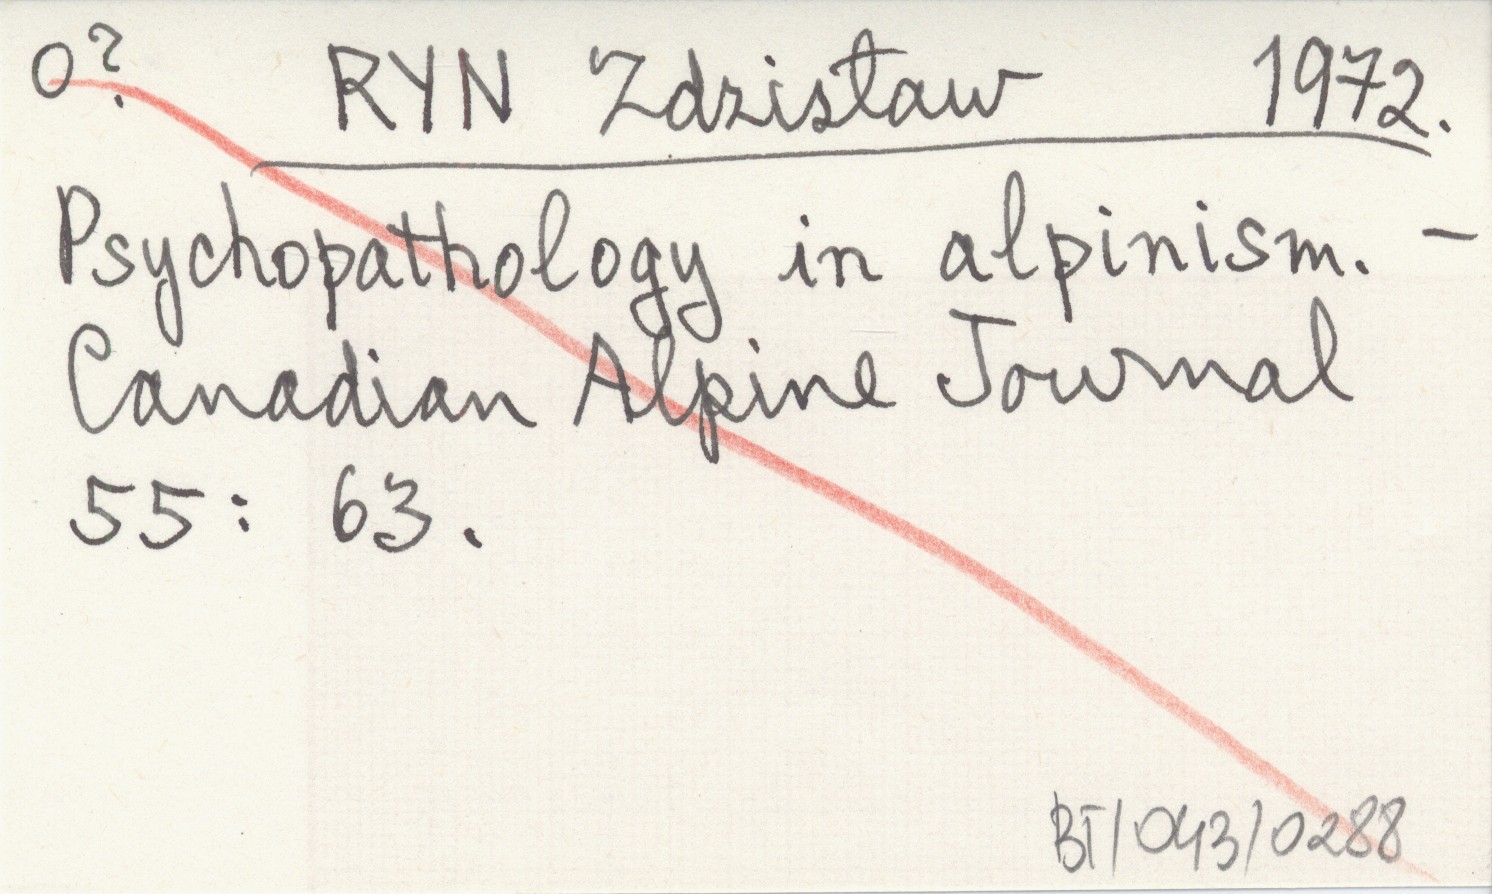 O? RYN Zdzisław 1972.
Psychopathology in alpinism. –
Canadian Alpine Journal
55: 63.
BT/043/0288